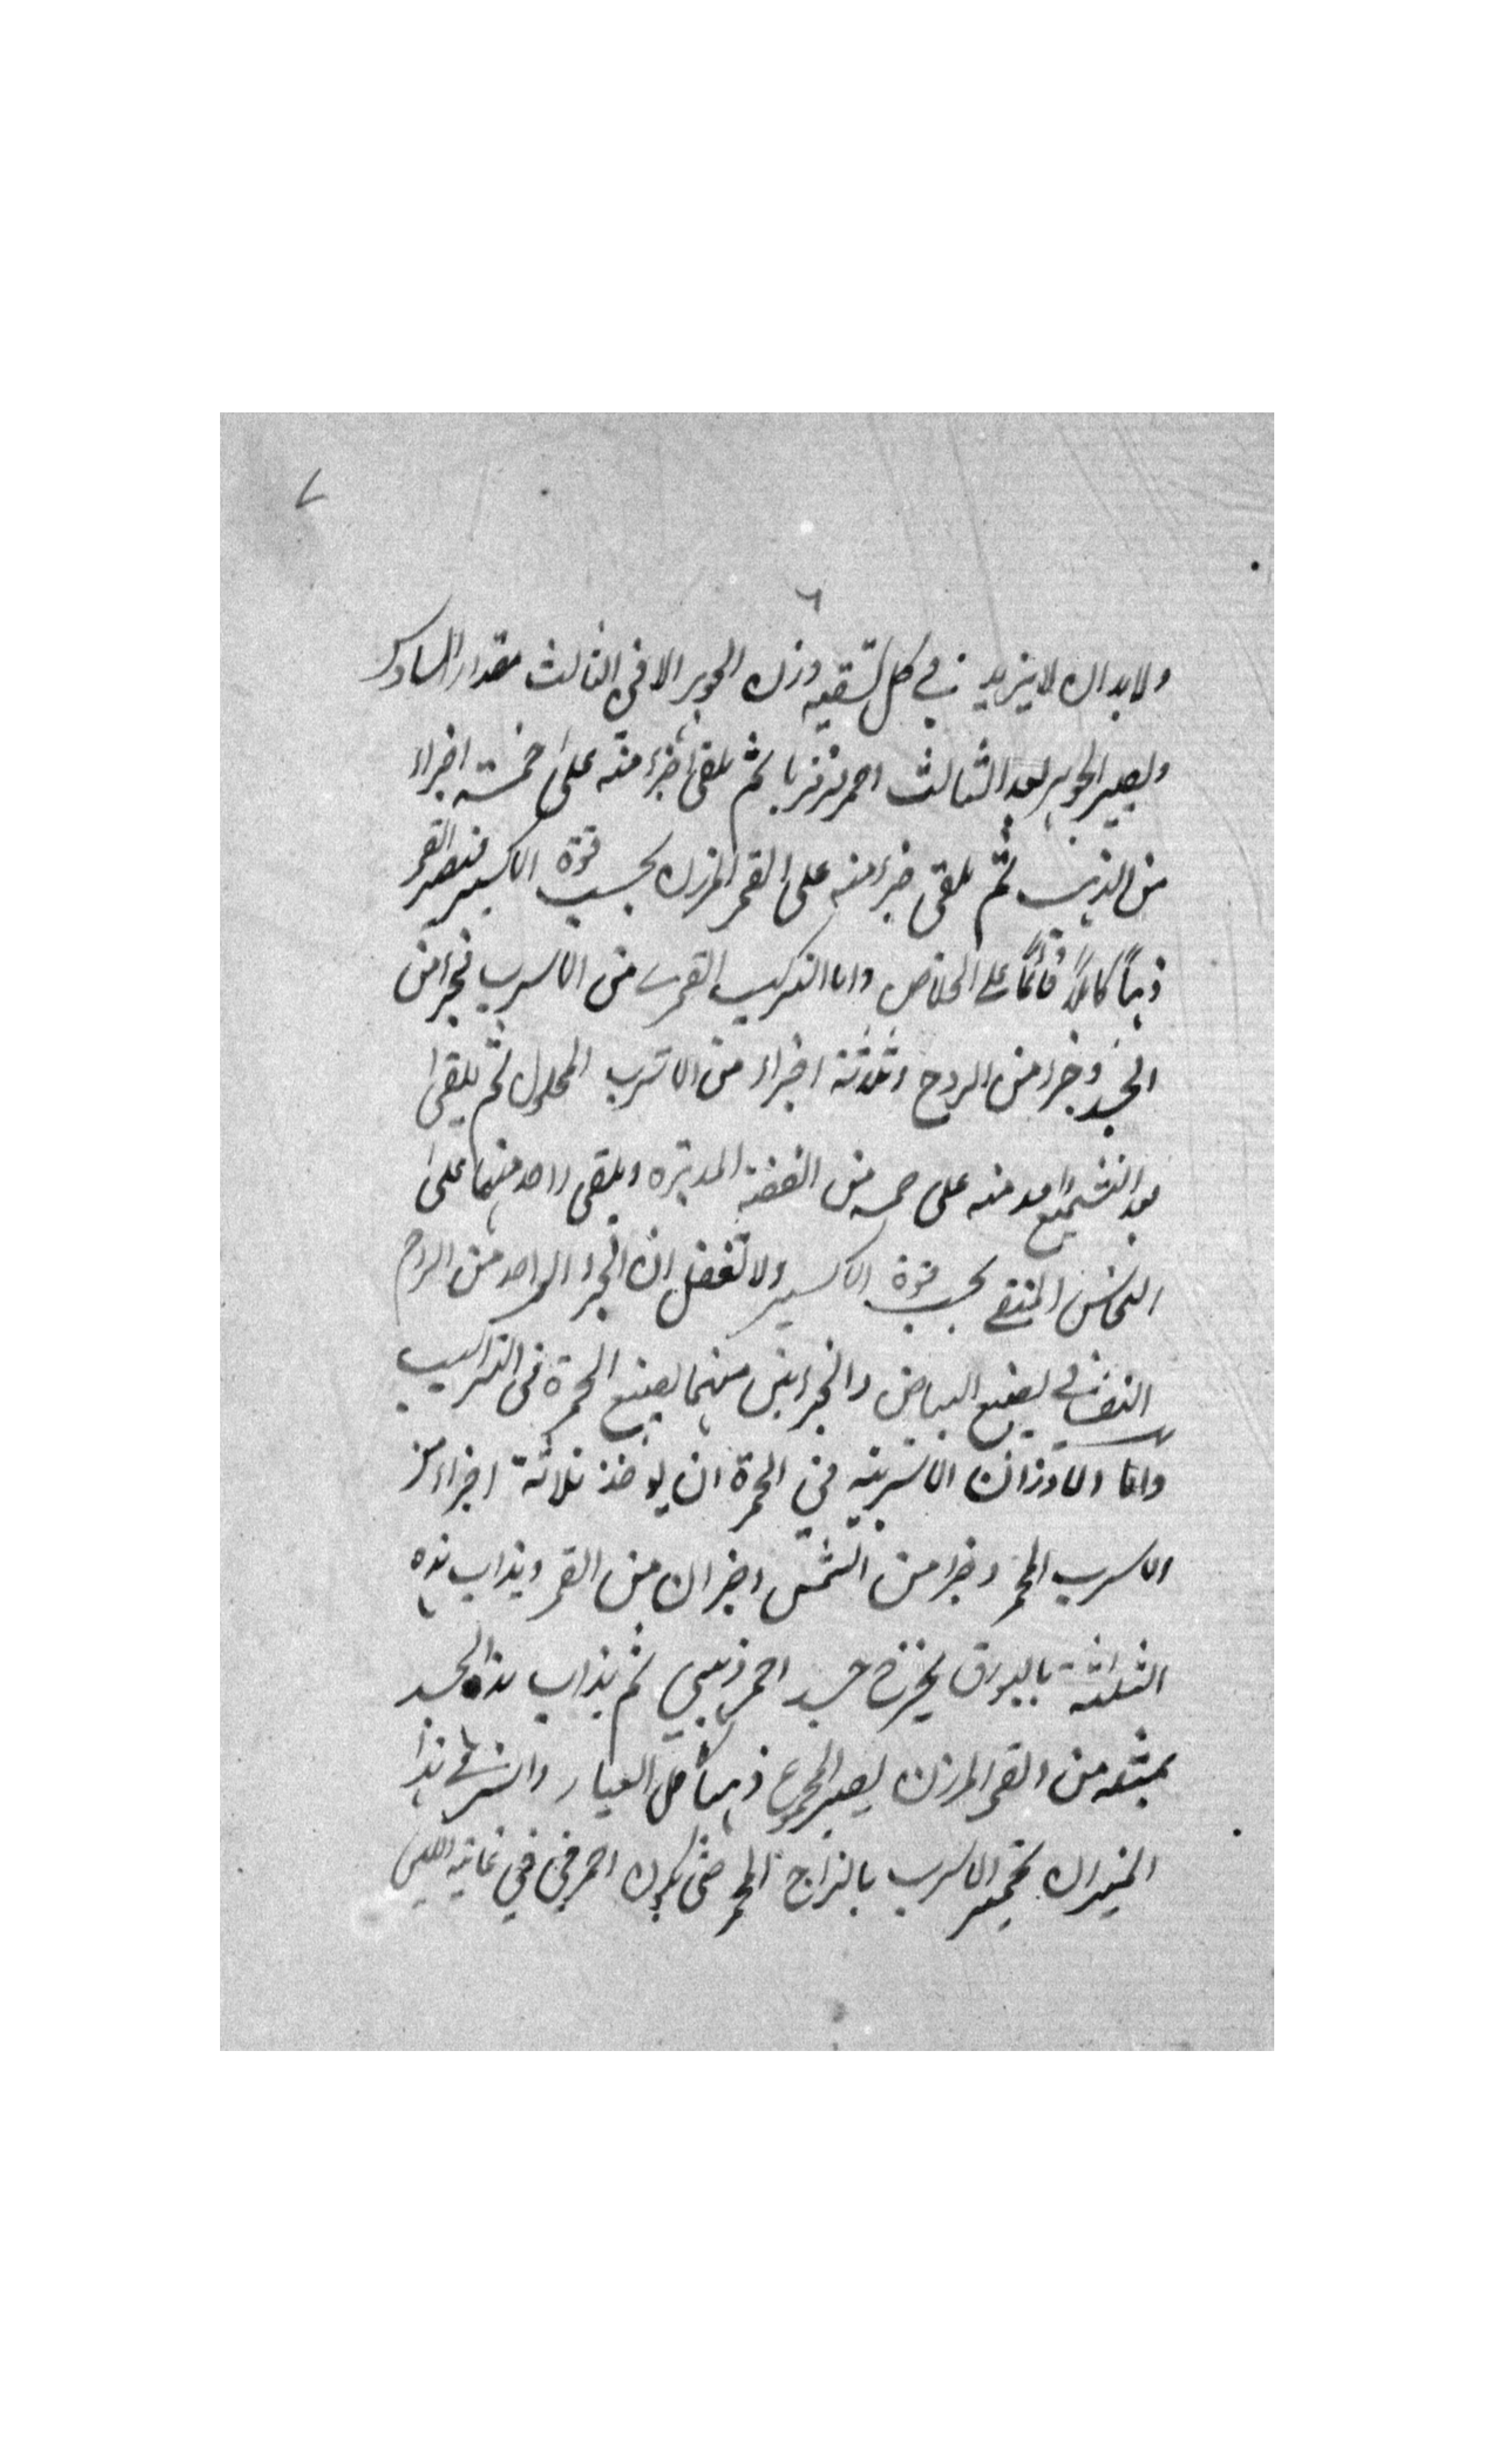 ٧
٦
ولابد ان لايزيد في كل تسقيه وزن الجوهر الا في الثالث مقدار السادس
ويصير الجوهر بعد الثالث احمر نزنزيا ثم يلقى جزء منه على خمسة اجزاء
من الذهب ثم يلقى جزء منه على القمر المرزن بحسب قوة الاكسير فيصير القمر
ذهباً كاملاً قائماً على الخلاص واما التركيب القمرى من الاسرب فجزء من
الجسد وجزء من الروح وثلاثة اجزاء من الاسرب المحلول ثم يلقى
بعد التشميع واحد منه على خمسه من الفضة المدبره ويلقى واحد منها على
النحاس المنقى بحسب قوة الاكسير ولا تغفل ان الجزء الواحد من الروح
النوشادر يصبغ البياض والجزءين منهما يصبغ الحمرة في التراكيب
واما الاوزان الاسربيه في الحمرة ان يوخذ ثلاثة اجزاء من
الاسرب المحمر وجزء من الشمس وجزءان من القمر ويذاب هذه
الثلاثة بالبورق يخرج جسد احمر ذهبي ثم يذاب هذا الجسد
بمثله من القمر المرزن يصير المجموع ذهبا كامل العيار والسر في هذا
الميزان تحمير الاسرب بالزاج المحمر حتى يكون احمر في في غاية اللين